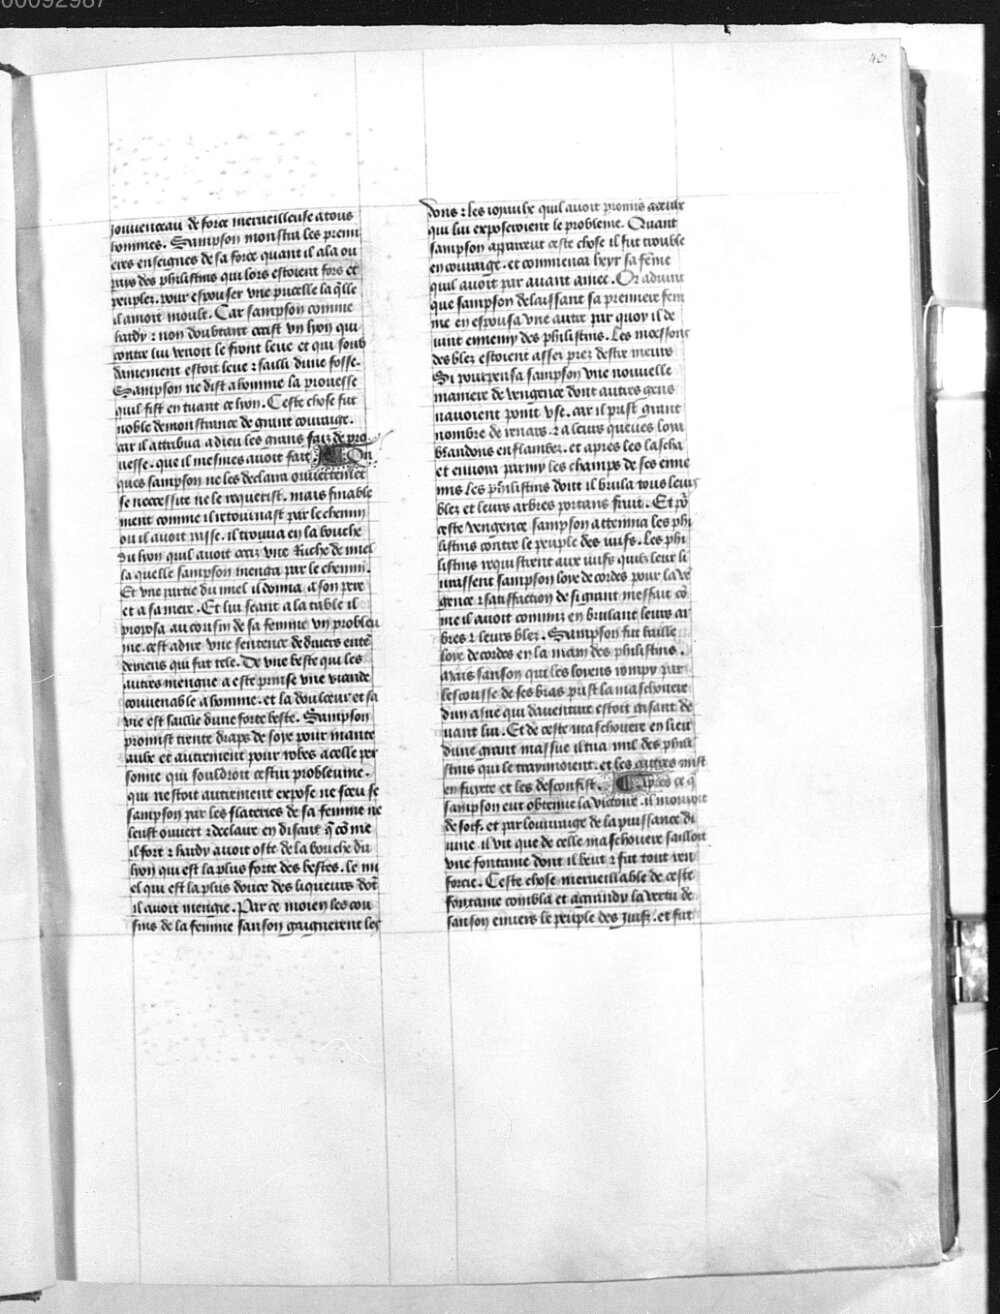 00092987
40
jouuenceau de force merueilleuse a tous
hommes. Sampson monstra les premi
eres enseignes de sa force quant il ala ou
pays des philistins qui lors estoient fors et
peuplez. pour espouser vne pucelle la q̄lle
il amoit moult. Car sampson comme
hardy ⁊ non doubtant occist vn lyon qui
contre lui venoit le front leue et qui soub
damement estoit leue ⁊ sailli dune fosse.
Sampson ne dist a homme la prouesse
quil fist en tuant ce lyon. Ceste chose fut
noble demonstrance de grant courage.
car il attribua a dieu les grans faiz de pro
uesse. que il mesmes auoit fait On
ques sampson ne les declara ouuertement
se necessite ne le requerist. mais finable
ment comme il retournast par le chemin
ou il auoit passe. il trouua en la bouche
du lyon quil auoit occiz vne Ruche de miel
la quelle sampson menga par le chemin.
Et vne partie du miel il donna a son pere
et a sa mere. Et lui seant a la table il
proposa au cousin de sa femme vn proble
me. cest adire vne sentence de diuers entē
demens qui fut tele. De vne beste qui les
autres mengue a este prinse vne viande
conuenable a homme. et la doulceur et sa
vie est saillie dune forte beste. Sampson
promist trente draps de soye pour mante
aulx et autrement pour robes a celle per
sonne qui souldroit cestui probleume.
qui nestoit autrement expose ne sceu se
sampson par les flateries de sa femme ne
leust ouuert ⁊ declaire en disant q̄ cōme
il fort ⁊ hardy auoit oste de la bouche du
lyon qui est la plus forte des bestes. le mi
el qui est la plus douce des liqueurs dōt
il auoit mengie. Par ce moien les cou
sins de la femme sanson gaignerent les
dons ⁊ les ioyaulx quil auoit promis a ceulx
qui lui exposeroient le probleme. Quant
sampson apparceut ceste chose il fut trouble
en courage. et commenca heyr sa fēme
quil auoit par auant amee. Or aduint
que sampson delaissant sa premiere fem
me en espousa vne autre par quoy il de
uint ennemy des philistins. Les moessons
des blez estoient assez prez destre meurs
Si pourpensa sampson vne nouuelle
maniere de vengence dont autres gens
nauoient point vse. car il prist grant
nombre de renars. ⁊ a leurs queues loia
brandons enflambez. et apres les lascha
et enuoia parmy les champs de ses enne
mis les philistins dont il brula tous leurs
blez et leurs arbres portans fruit. Et pō
ceste vengence sampson attenna les phi
listins contre le peuple des iuifs. Les phi
listins requistrent aux iuifs quilz leur li
urassent sampson loye de cordes pour la vē
gence ⁊ satisfaction de si grant meffait cō
me il auoit commiz en brulant leurs ar
bres ⁊ leurs blez. Sampson fut baille
loye de cordes en la main des philistins.
Mais sanson qui les loyens rompy par
lescousse de ses bras prist la maschouere
dun asne qui dauenture estoit gisant de
uant lui. Et de ceste maschouere en lieu
dune grant massue il tua mil des phili
stins qui le traynoient. et les autres mist
en fuyete et les desconfist. Apres ce q̄
sampson eut obtenue la victoire. il mouroit
de soif. et par louurage de la puissance di
uine. il vit que de celle maschouere sailloit
vne fontaine dont il beut ⁊ fut tout ren
forcie. Ceste chose merueillable de ceste
fontaine combla et agrandy la vertu de
sanson enuers le peuple des juifz. et fut